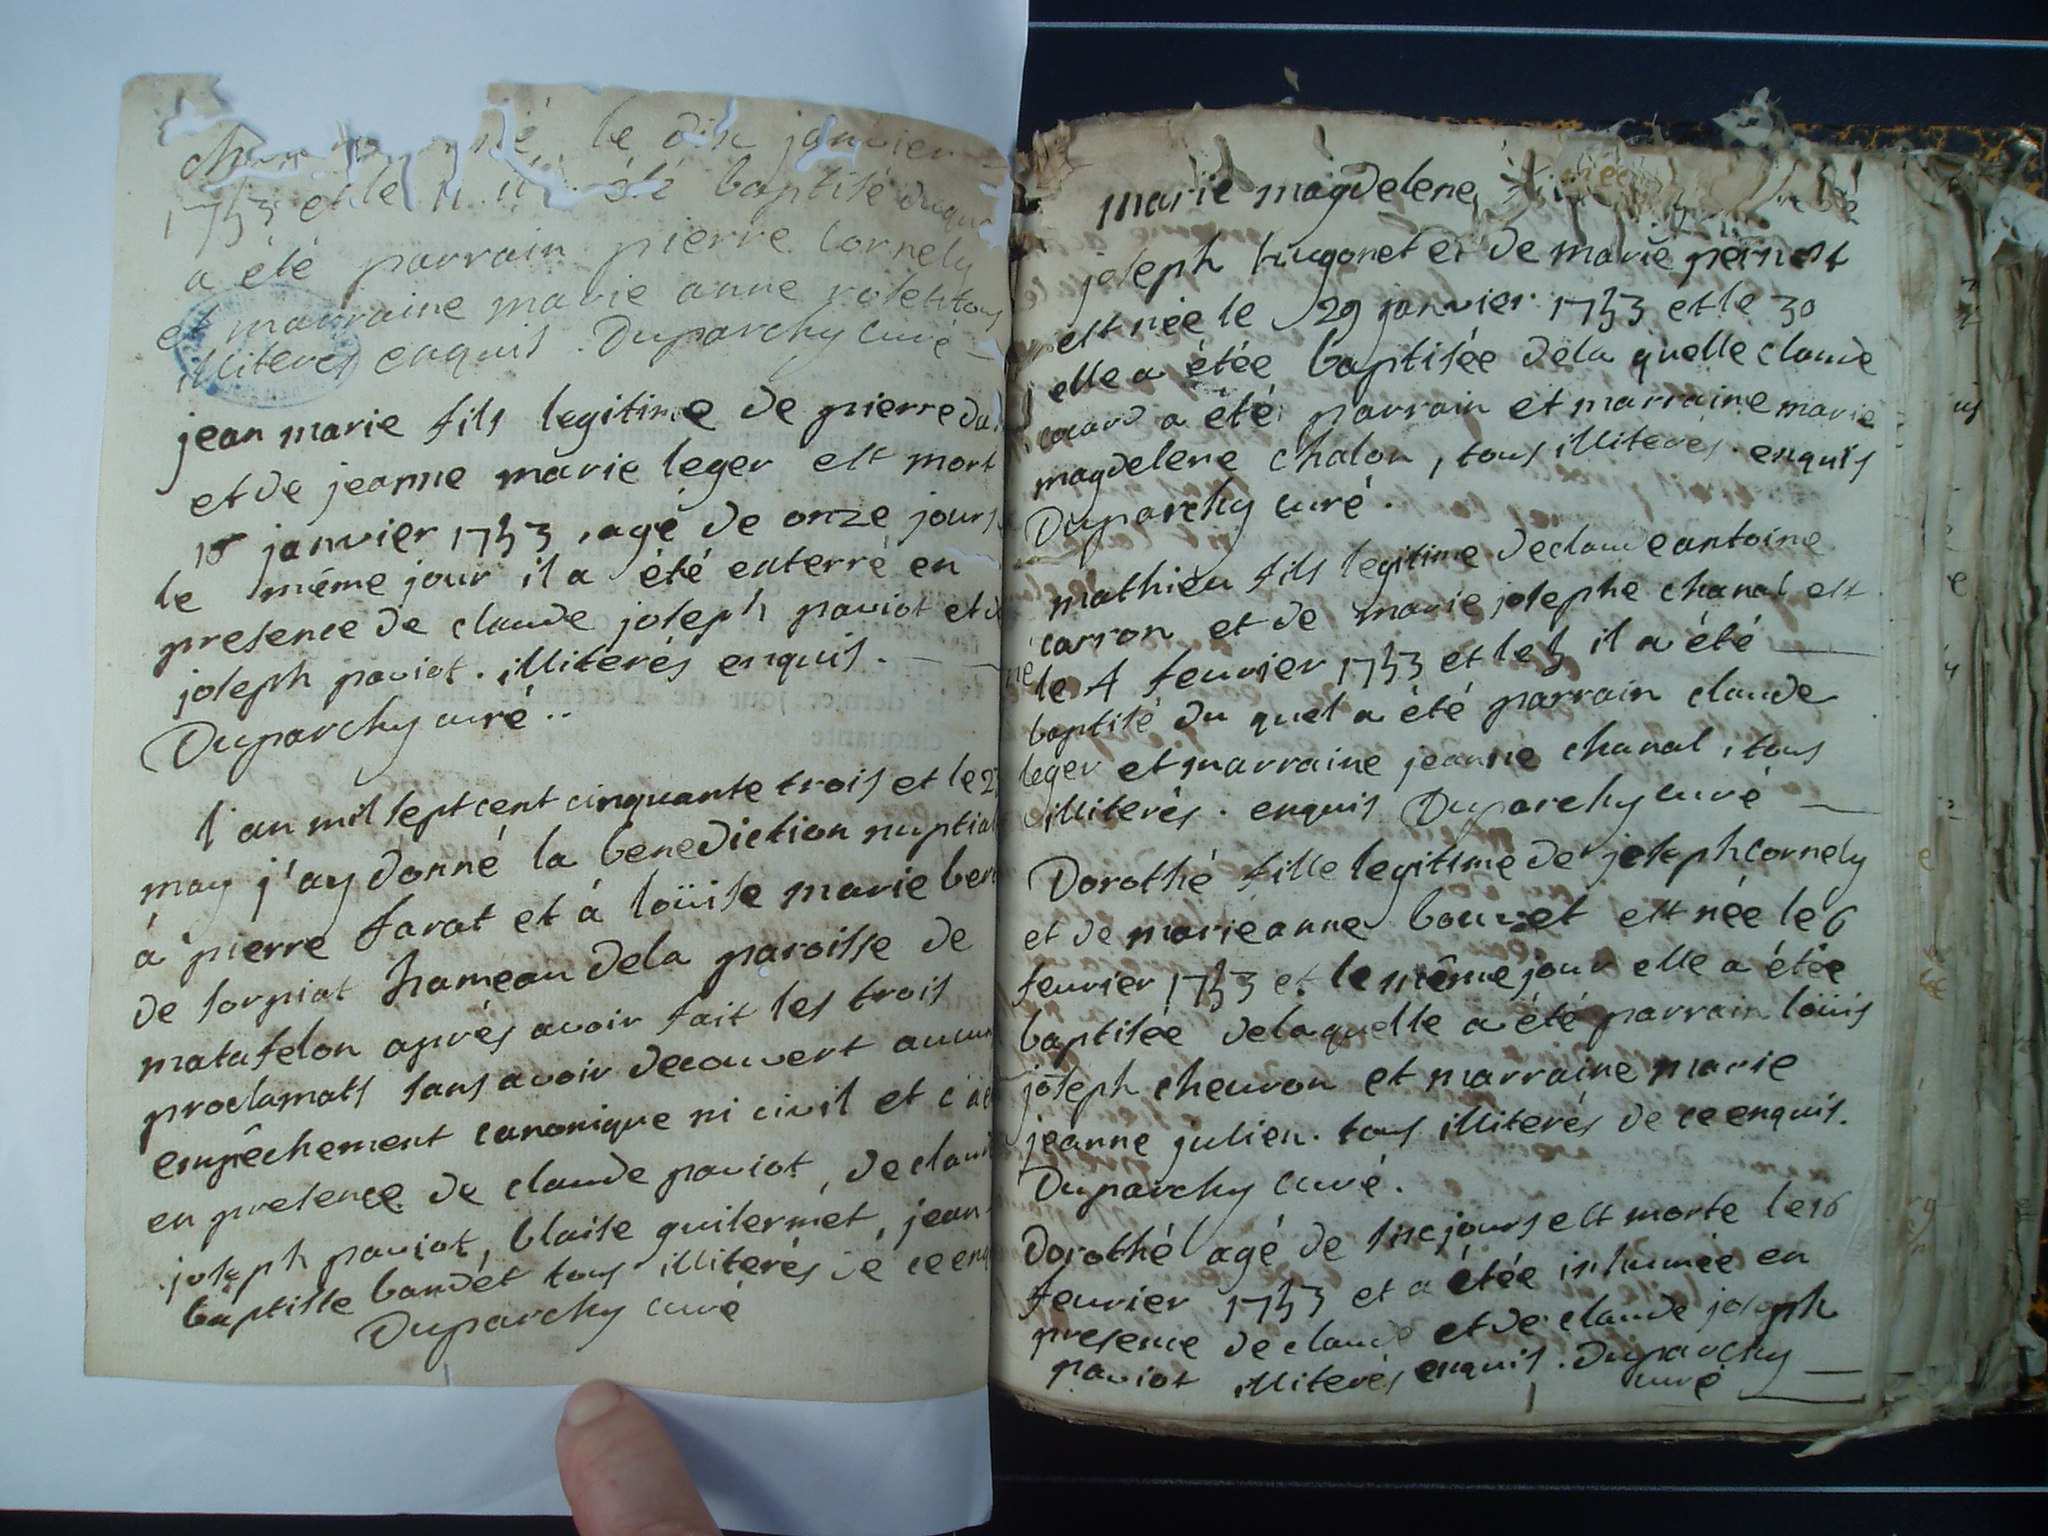 né le dix janvier
1753 et le 11 il a été baptisé duquel
a été parrain pierre Cornely
et marraine marie anne rolet tous
illiterés enquis. Duparchy curé
jean marie fils legitime de pierre
et de jeanne marie leger est mort
15 janvier 1753, agé de onze jours
le même jour il a été enterré en
presence de claude joseph paviot et
joseph paviot. illiterés enquis.
Duparchy curé..
l'an mil sept cent cinquante trois et le
may j'ay donné la benediction nuptial
à pierre farat et à loüise marie
de sorpiat hameau dela paroisse de
matafelon aprés avoir fait les trois
proclamats sans avoir decouvert aucun
empêchement canonique ni civil et
en presence de claude paviot, de claude
joseph paviot, blaise guilermet, jean
baptiste bandet tous illiterés dé ce enq
Duparchy curé
marie magdelene
joseph hugonet et de marie pernot
est née le 29 janvier 1753 et le 30
elle a étée baptisée dela quelle claude
cocard a été parrain et marraine marie
magdelene chalon, tous illiterés. enquis
Duparchy curé.
mathieu fils legitime declaude antoine
carron et de marie josephe chanal est
né le 4 fevrier 1753 et le 5 il a été
baptisé du quel a été parrain claude
leger et marraine jeanne chanal, tous
illiterés. enquis Duparchy curé
Dorothé fille legitime de joseph cornely
et de marie anne bouvet est née le 6
fevrier 1753 et le même jour elle a étée
baptisée delaquelle a été parrain loüis
joseph chevron et marraine marie
jeanne julien. tous illiterés de ce enquis.
Duparchy curé.
Dorothé agé de six jours est morte le 16
fevrier 1753 et a étée inhumée en
presence de claude et de claude joseph
paviot illiterés enquis. Duparchy
curé